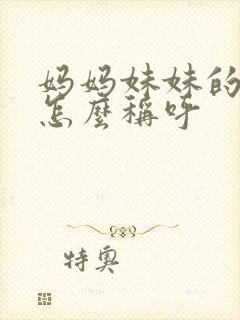 妈妈妹妹的
怎麼稱呼
特奧